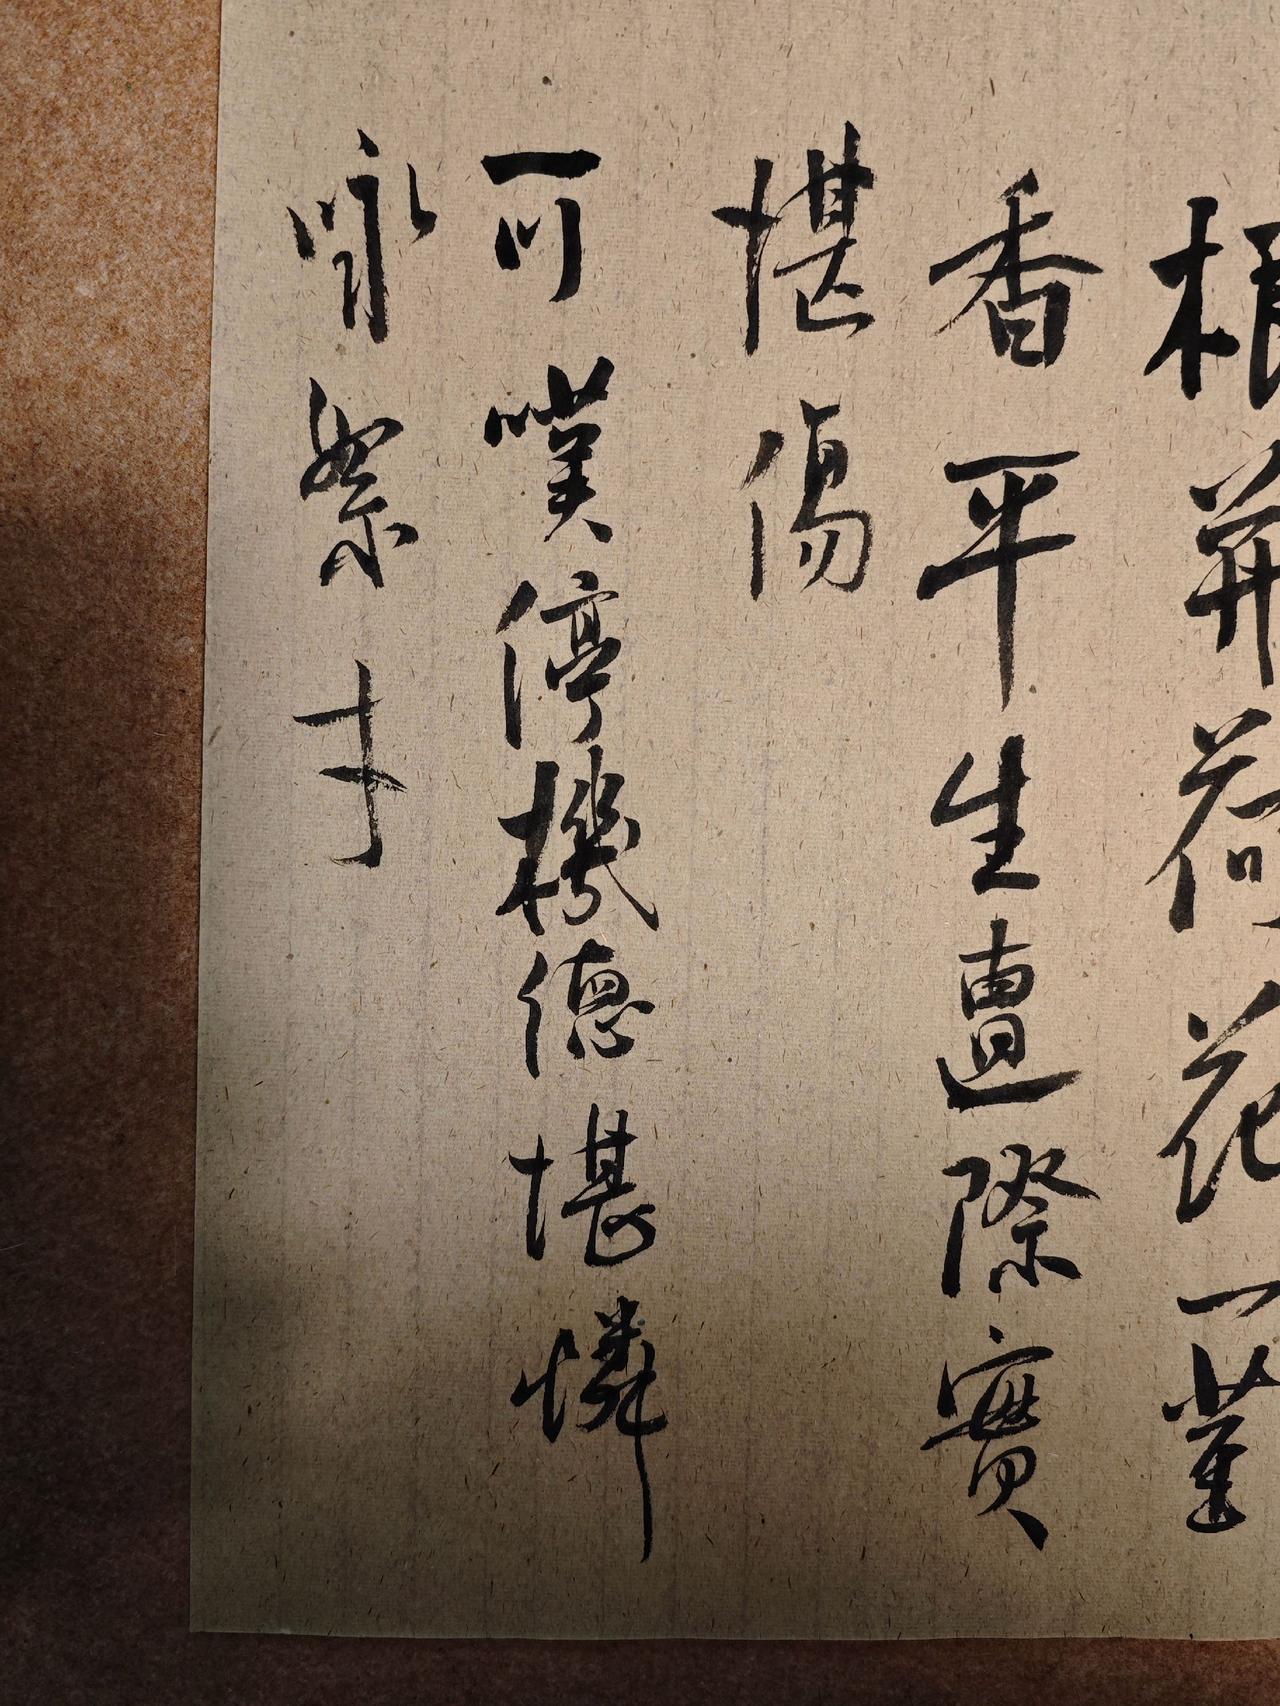 根并荷花一茎
香平生遭際實
堪傷
可嘆停機德堪憐
咏絮才